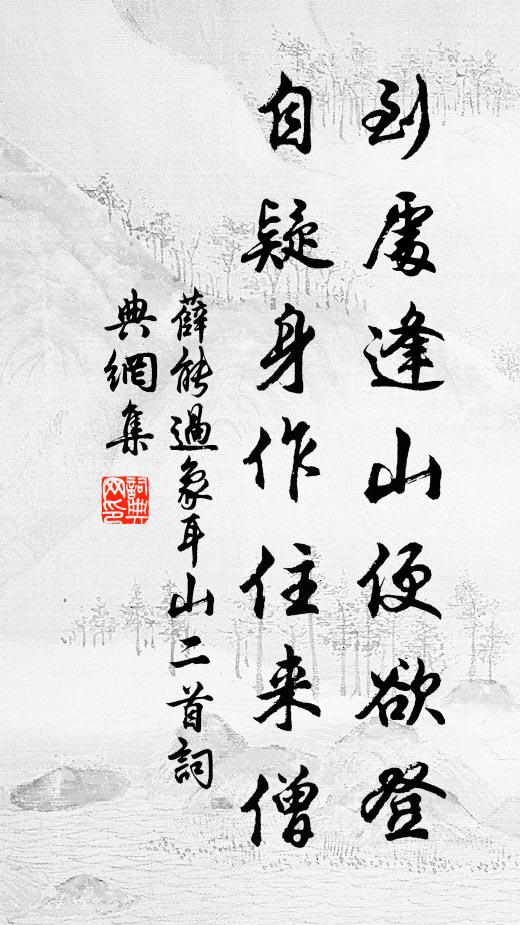 到處逢山便欲登
自疑身作住来僧
薛能過象耳山二首詞
典網集
詞典網印